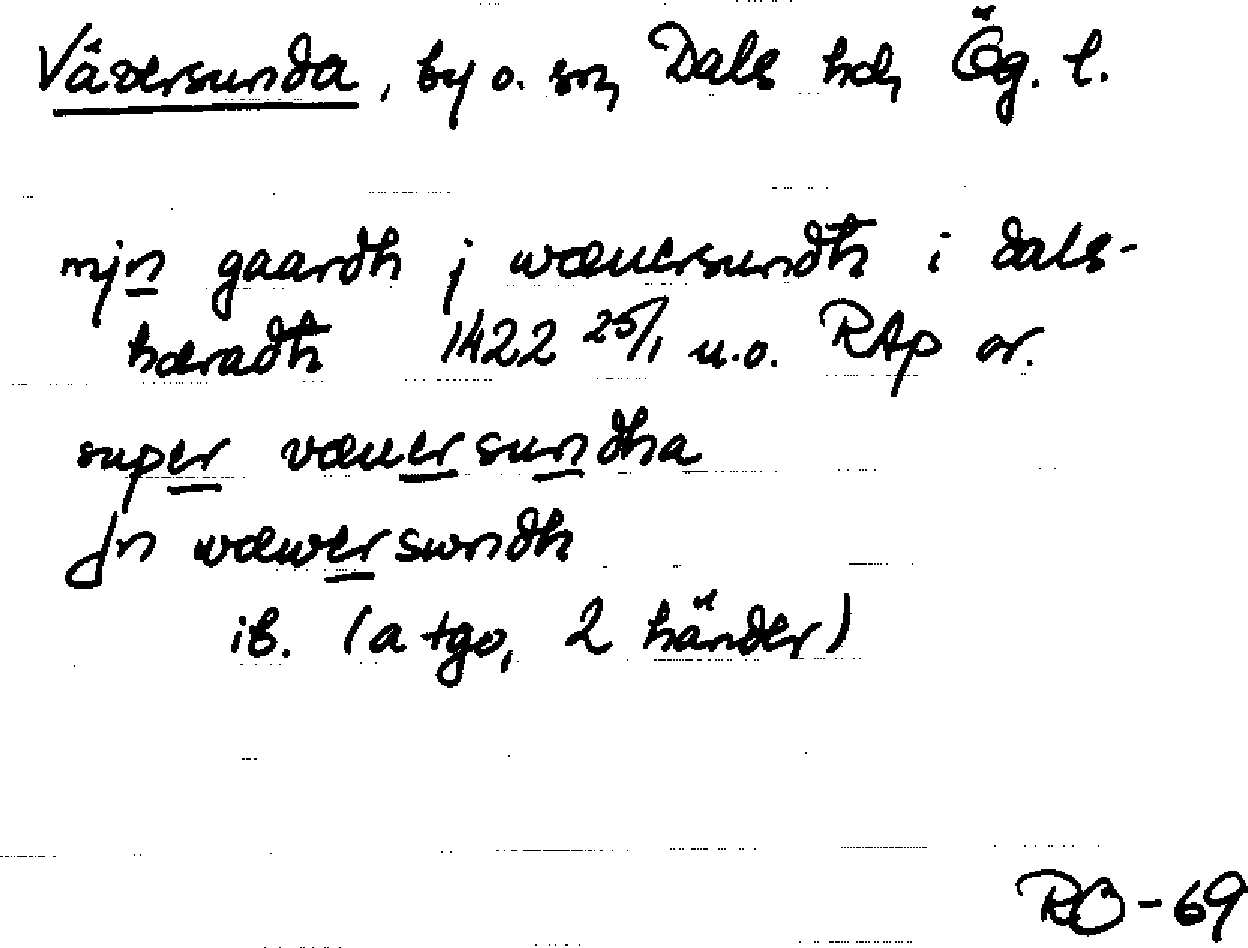 Väversunda, by o. sn, Dals hd, Ög. l.
mjn gaardh j wæuersundh i dals-
hæradh 1422 25/1 u.o. RAp or.
super væuersundha
Jn wæwersundh
ib. (a tgo, 2 händer)
RO-69